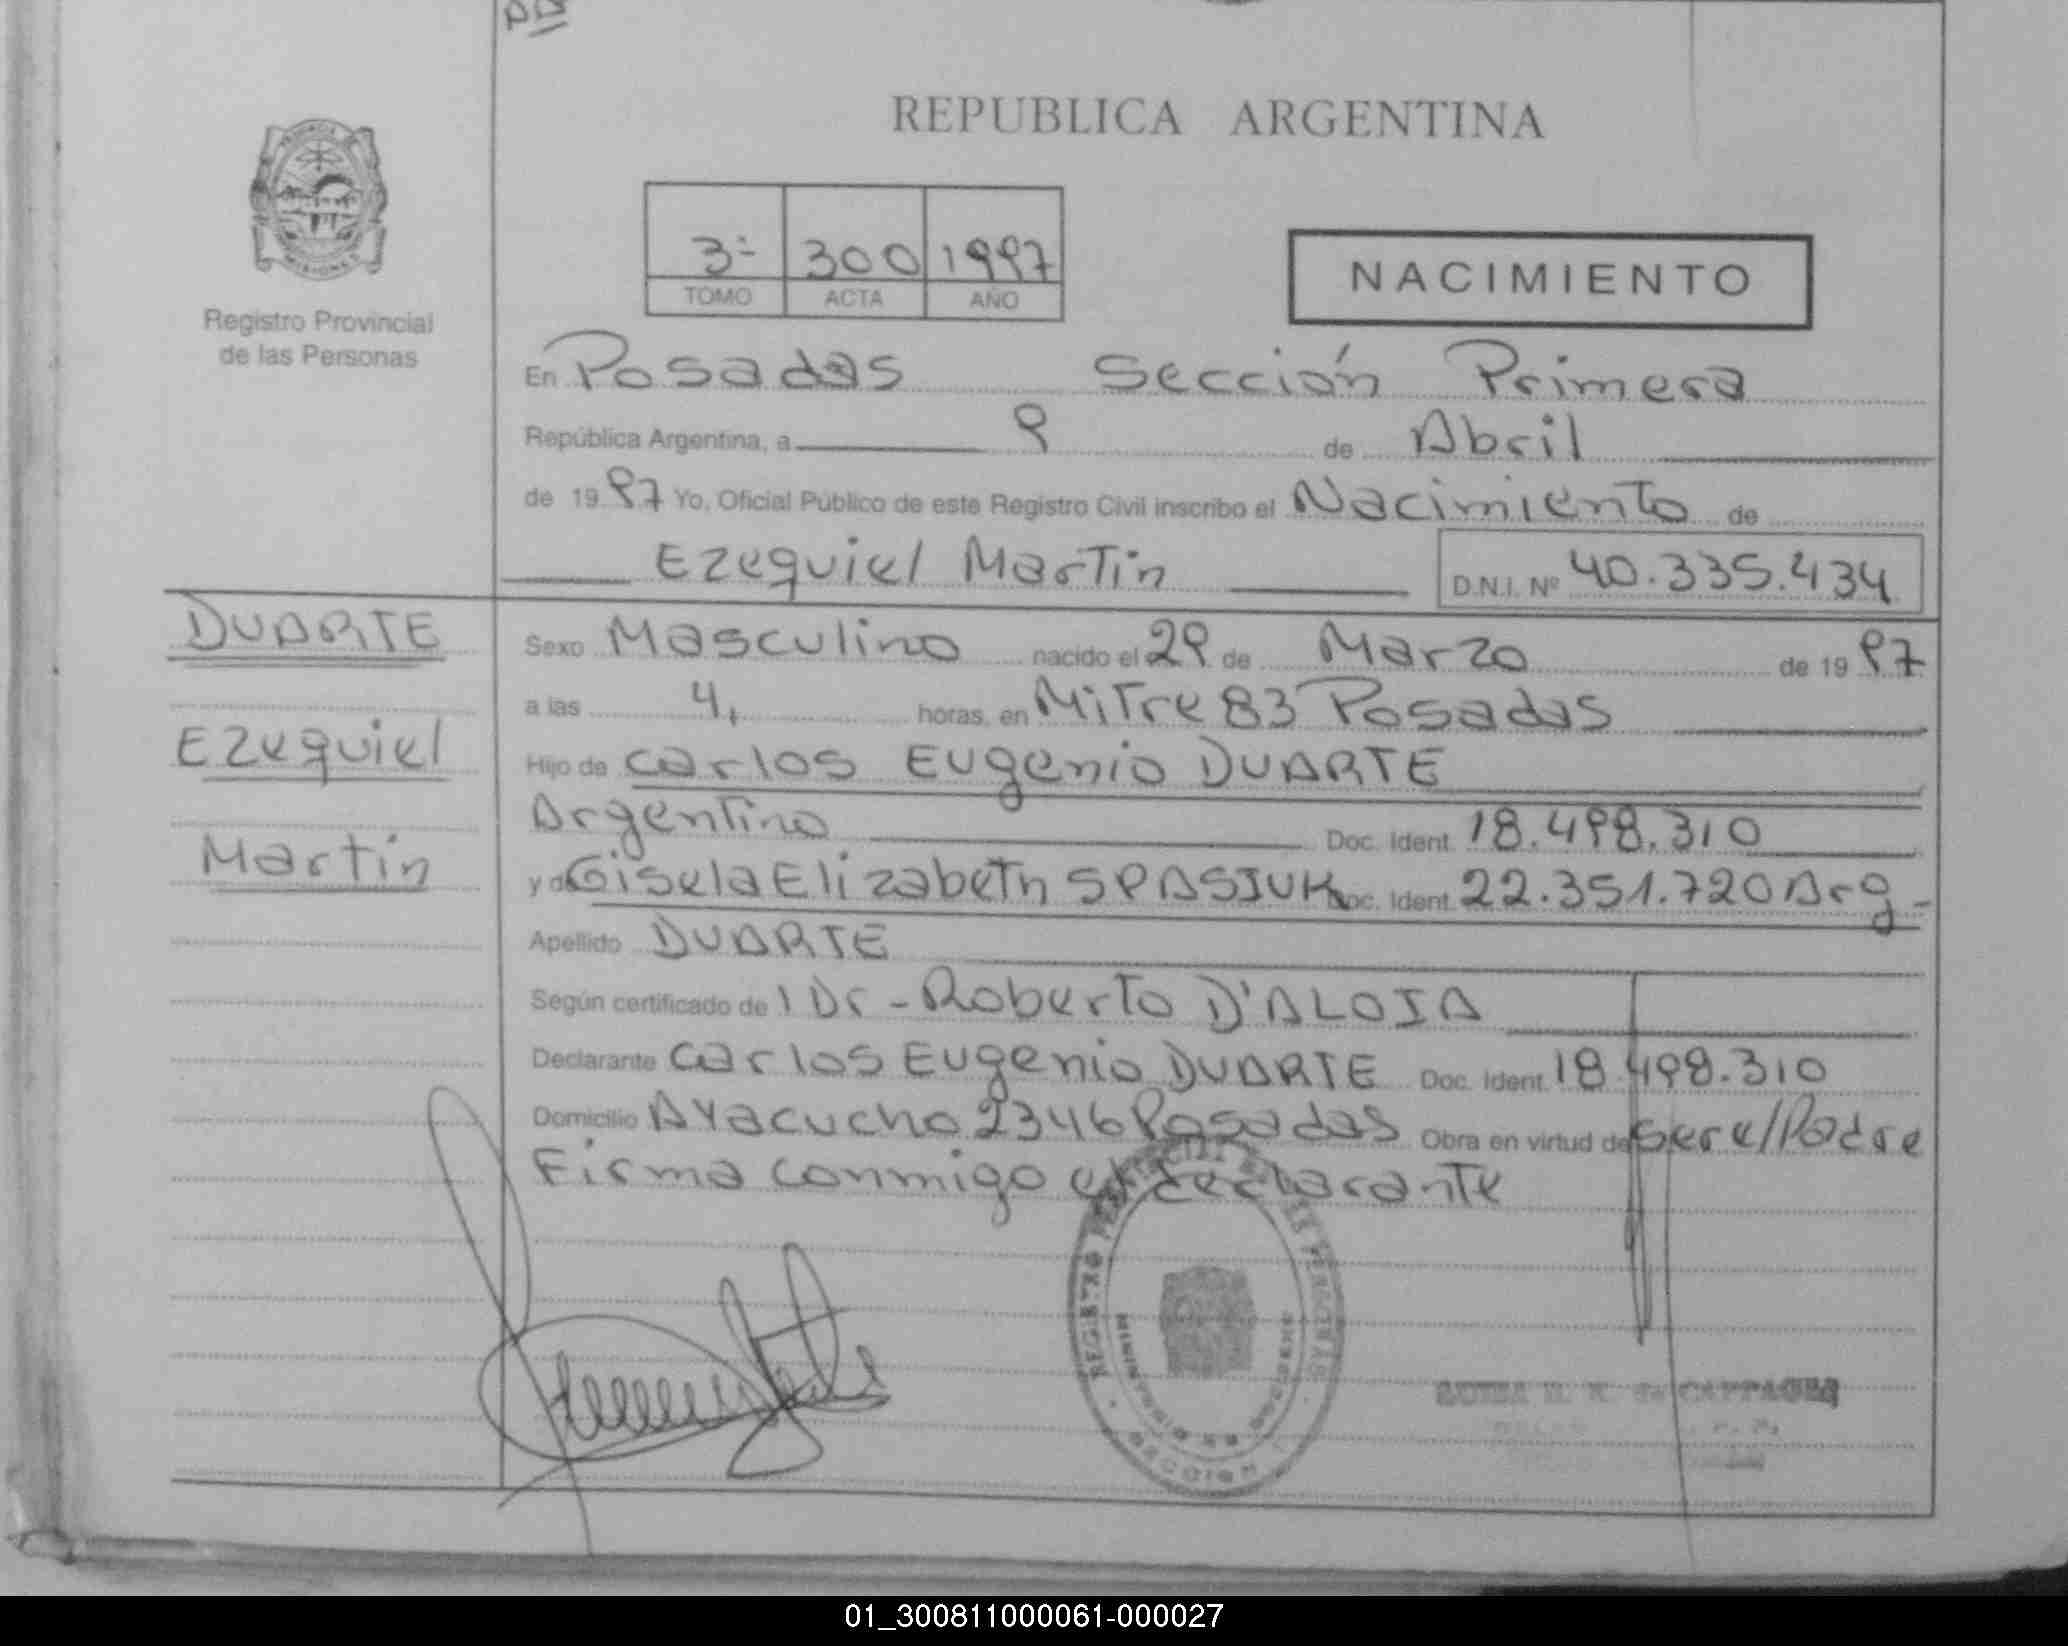 REPUBLICA ARGENTINA
MISIONES
Registro Provincial
de las Personas
3º 300 1997
TOMO ACTA AÑO
NACIMIENTO
En Posadas Sección Primera
República Argentina, a 9 de Abril
de 1997 Yo, Oficial Público de este Registro Civil inscribo el Nacimiento de
Ezequiel Martin D.N.I. Nº 40.335.434
DUARTE
Ezequiel
Martín
Sexo Masculino nacido el 29 de Marzo de 1997
a las 4, horas, en Mitre 83 Posadas
Hijo de Carlos Eugenio DUARTE
Argentino Doc. Ident. 18.498.310
y de Gisela Elizabeth SPASIUK Doc. Ident. 22.351.720 Arg-
Apellido DUARTE
Según certificado de l Dr - Roberto D'ALOIA
Declarante Carlos Eugenio DUARTE Doc. Ident. 18.498.310
Domicilio Ayacucho 2346 Posadas Obra en virtud de Ser el Padre
Firma conmigo el declarante
REGISTRO PROVINCIAL DE LAS PERSONAS
MINISTERIO DE GOBIERNO
SECCION
01_300811000061-000027